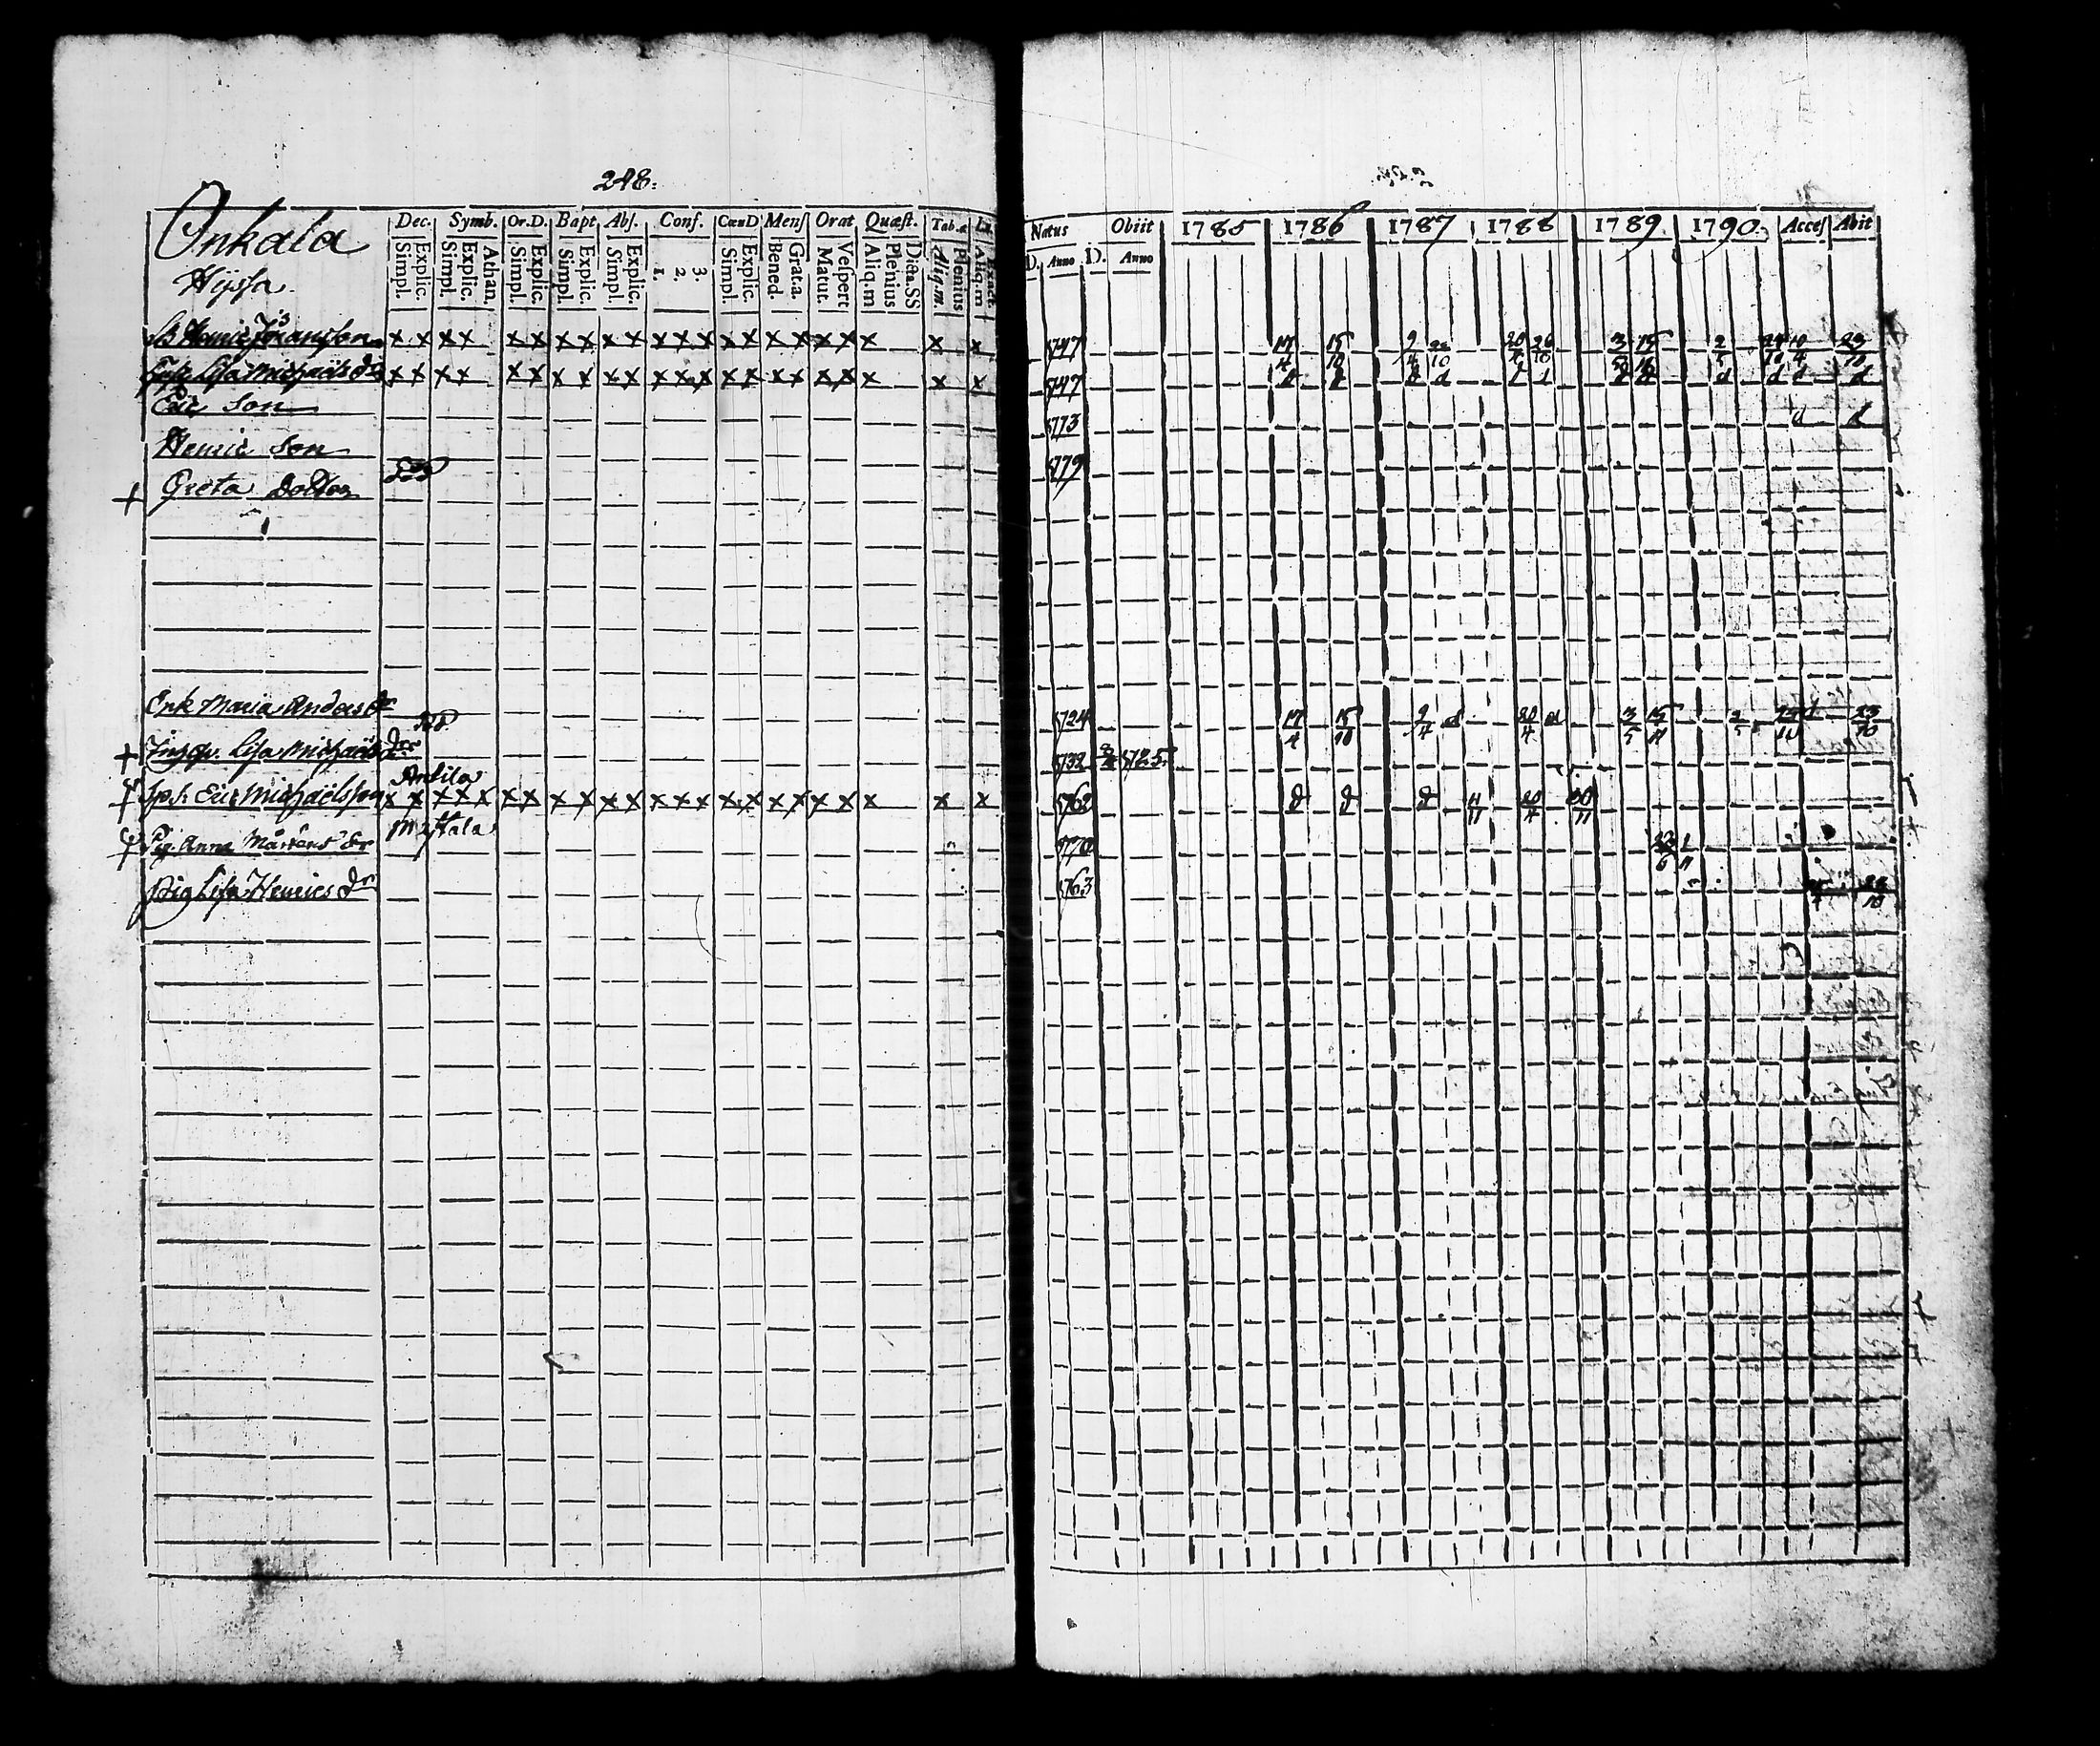 248.
Onkala
Hyssa.
Dec. Symb. Or.D. Bapt Abſ. Conf. CœnD Menſ Orat Quæſt. Tab.æ
Simpl. Explic. Simpl. Explic. Athan. Simpl. Explic. Simpl. Explic. Simpl. Explic. 1. 2. 3. Simpl. Explic. Bened. Grat.a. Matut. Veſpert Aliq.m Plenius Dicta.SS Aliq.m. Plenius Aliq.m Exact.
Natus Obiit 1785 1786 1787 1788 1789 1790. Acceſ Abit
D. Anno D. Anno
Henric Jöransson x x x x x x x x x x x x x x x x x x x x x x 1747 17/4 15/10 9/4 22/10 20/4 26/10 3/5 15/11 2/5 24/10 10/4 23/10
Lisa Michaëls dr x x x x x x x x x x x x x x x x x x x x x x 1747 d d d d d d d d d d d d
Eric Son 1773 d d
Henric Son 1779
+ Greta Dotter död
Enk Maria Anders dr 1724 17/4 15/10 9/4 d 20/4 d 3/5 15/11 2/5 24/10 d 23/10
+ Lisa Michaëls dr död 1732 1785
Eric Michaëlsson Antila x x x x x x x x x x x x x x x x x x x x x x x 1762 d d d 11/11 20/4 30/11
Pig. Anna Mårtens dr Myttala 1770
Pig Lisa Henrics dr 1763 23/10